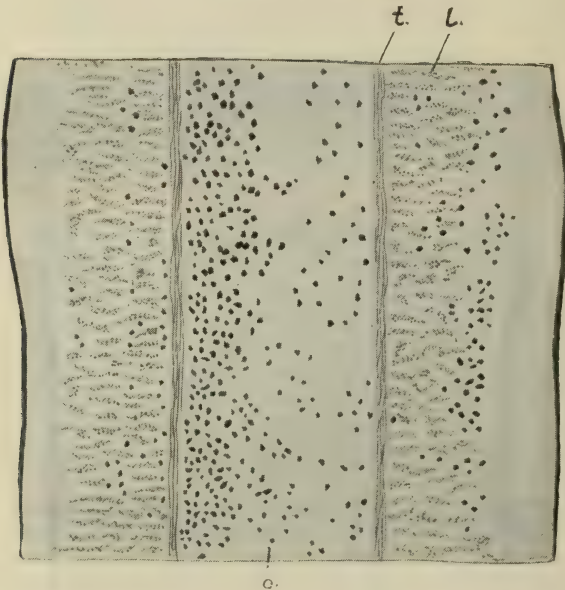 t. l.
c.